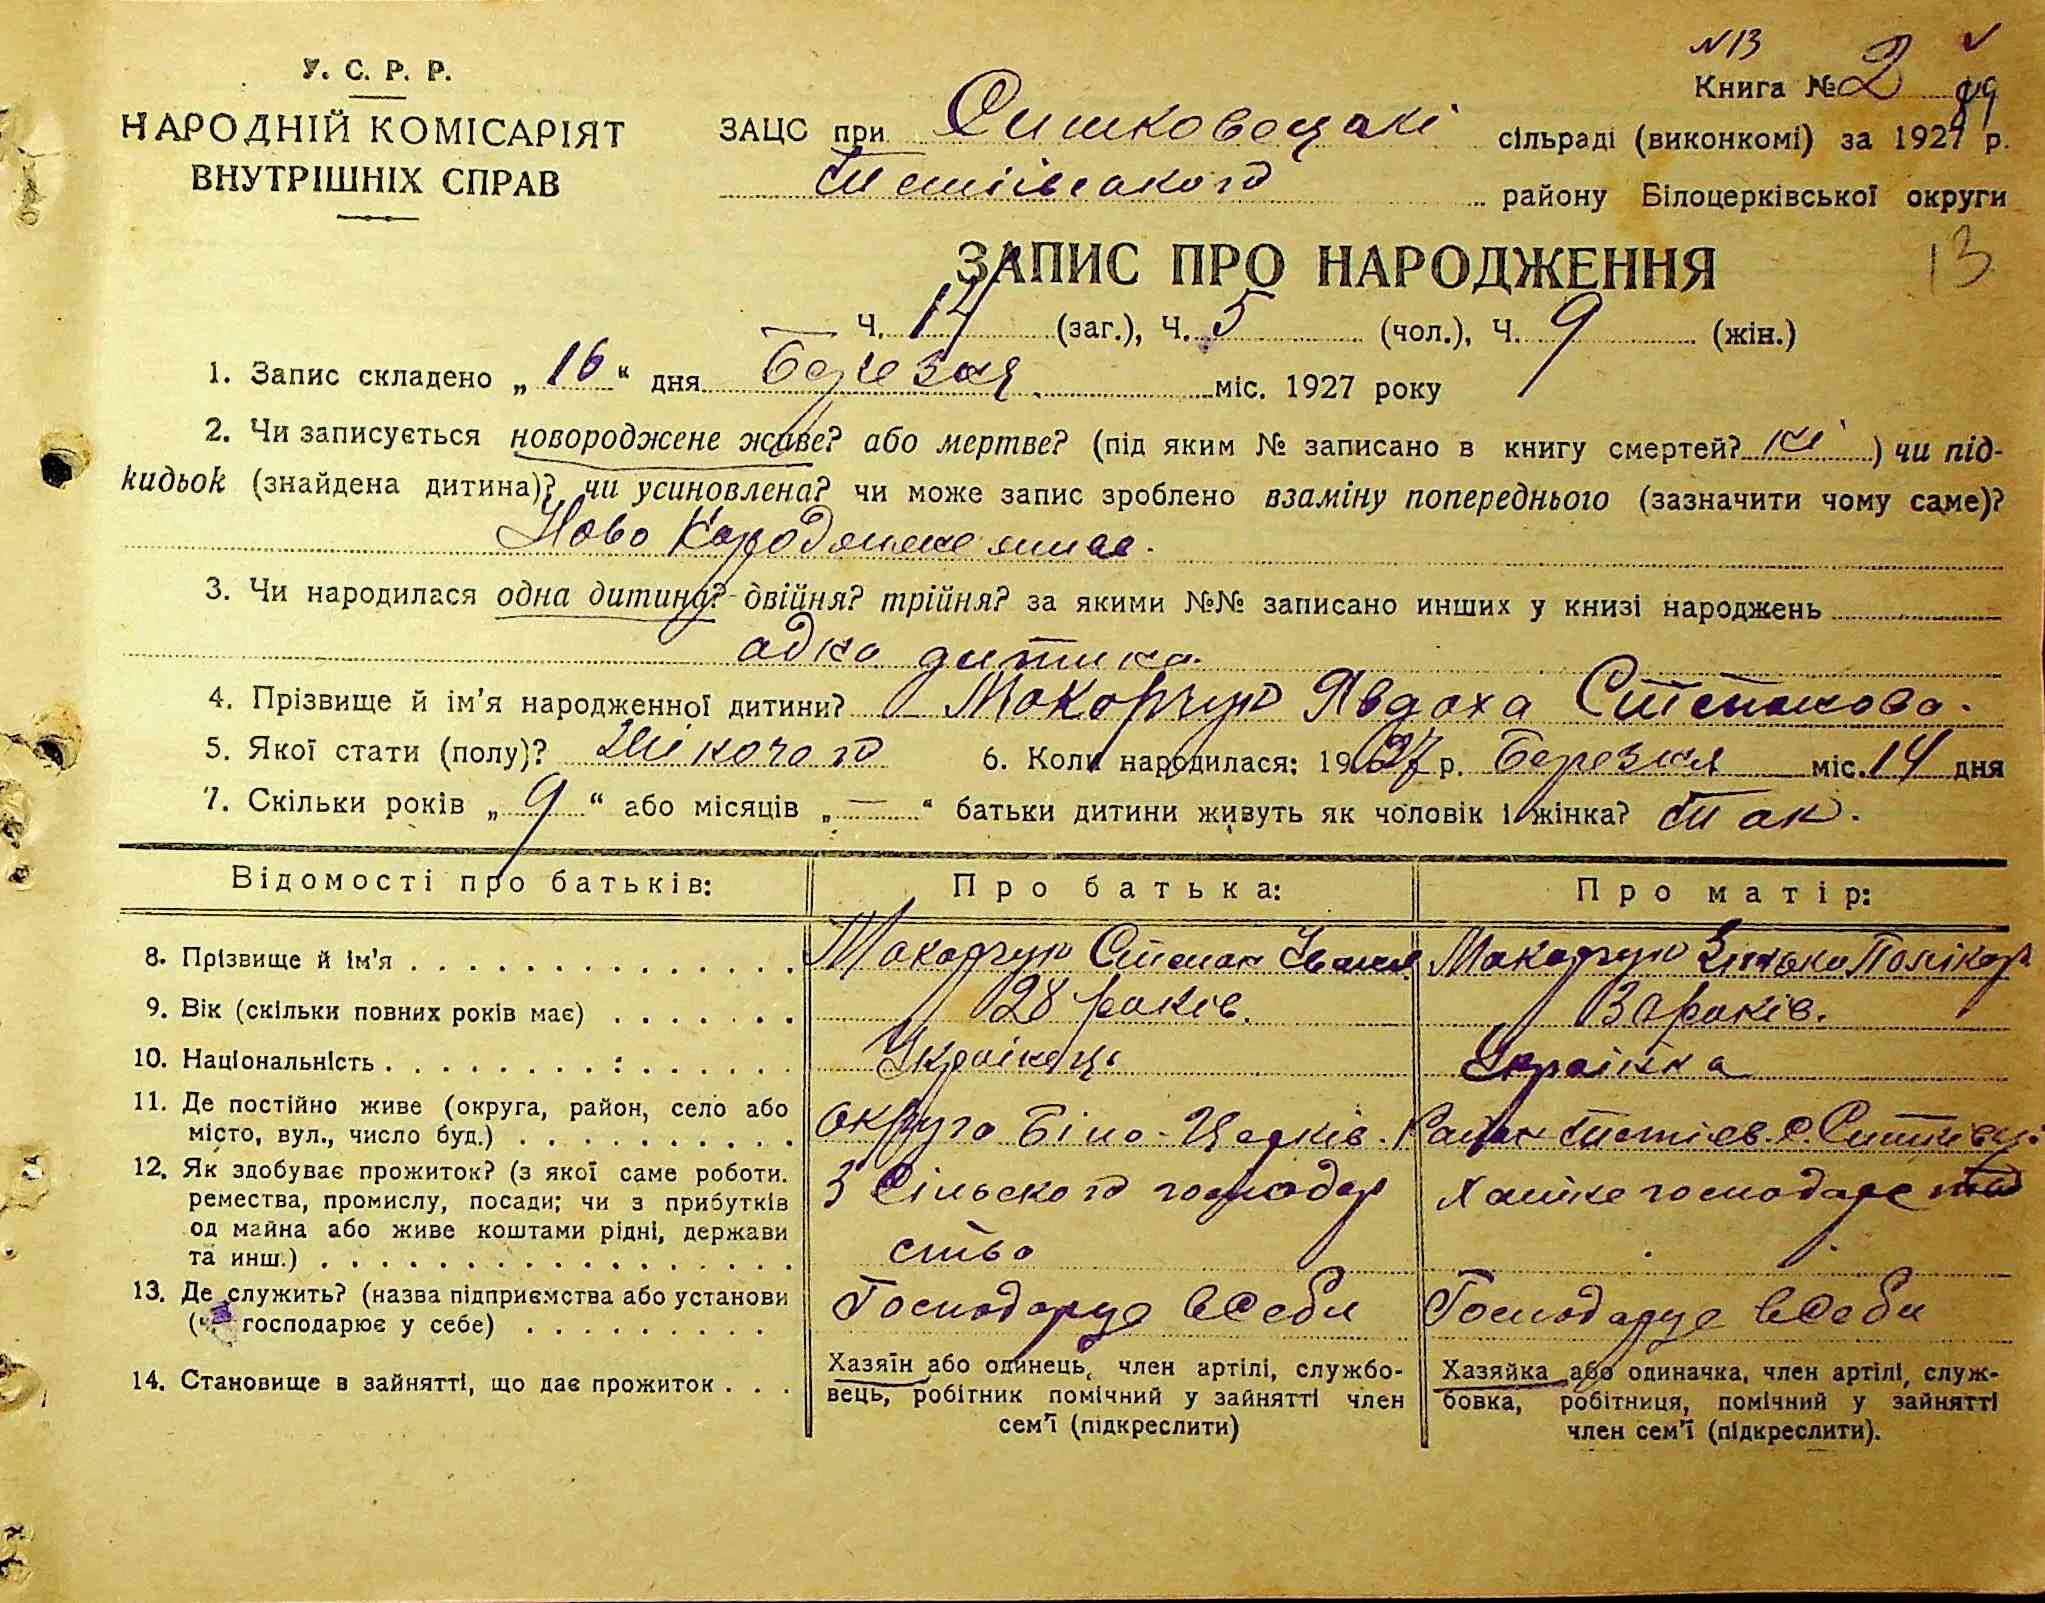 N 13
У. С. Р. Р.
Книга № 2
НАРОДНІЙ КОМІСАРІЯТ
ВНУТРІШНІХ СПРАВ
ЗАЦС при Сишковецкі сільраді (виконкомі) за 1927 р.
Тетіївського району Білоцерківської округи
ЗАПИС ПРО НАРОДЖЕННЯ
13
Ч. 14 (заг.), Ч. 5 (чол.), Ч. 9 (жін.)
1. Запис складено „16“ дня Березня міс. 1927 року
2. Чи записується новороджене живе? або мертве? (під яким № записано в книгу смертей? ні) чи під-
кидьок (знайдена дитина)? чи усиновлена? чи може запис зроблено взаміну попереднього (зазначити чому саме)?
Ново Народжене живе.
3. Чи народилася одна дитина? двійня? трійня? за якими №№ записано инших у книзі народжень
адна дитина.
4. Прізвище й ім'я народженної дитини? Макарчук Явдоха Степанова.
5. Якої стати (полу)? Жіночого 6. Коли народилася: 1927 р. Березня міс. 14 дня
7. Скільки років „9“ або місяців „—“ батьки дитини живуть як чоловік і жінка? Так.
Відомості про батьків: Про батька: Про матір:
8. Прізвище й ім'я Макарчук Степан Іванов Макарчук Зінька Полікар
9. Вік (скільки повних років має) 28 раків. 30 раків.
10. Національність Украінець Украінка
11. Де постійно живе (округа, район, село або
місто, вул., число буд.) Округа Біло-Церків. Район Тетіев. с. Сишківці
12. Як здобуває прожиток? (з якої саме роботи.
ремества, промислу, посади; чи з прибутків
од майна або живе коштами рідні, держави
та инш.)
З Сільского господар
ство
Хатнє господарство
13. Де служить? (назва підприємства або установи
господарює у себе) Господарує в Себи Господарує в Себи
14. Становище в зайнятті, що дає прожиток
Хазяїн або одинець, член артілі, службо-
вець, робітник помічний у зайнятті член
сем'ї (підкреслити)
Хазяйка або одиначка, член артілі, служ-
бовка, робітниця, помічний у зайнятті
член сем'ї (підкреслити).